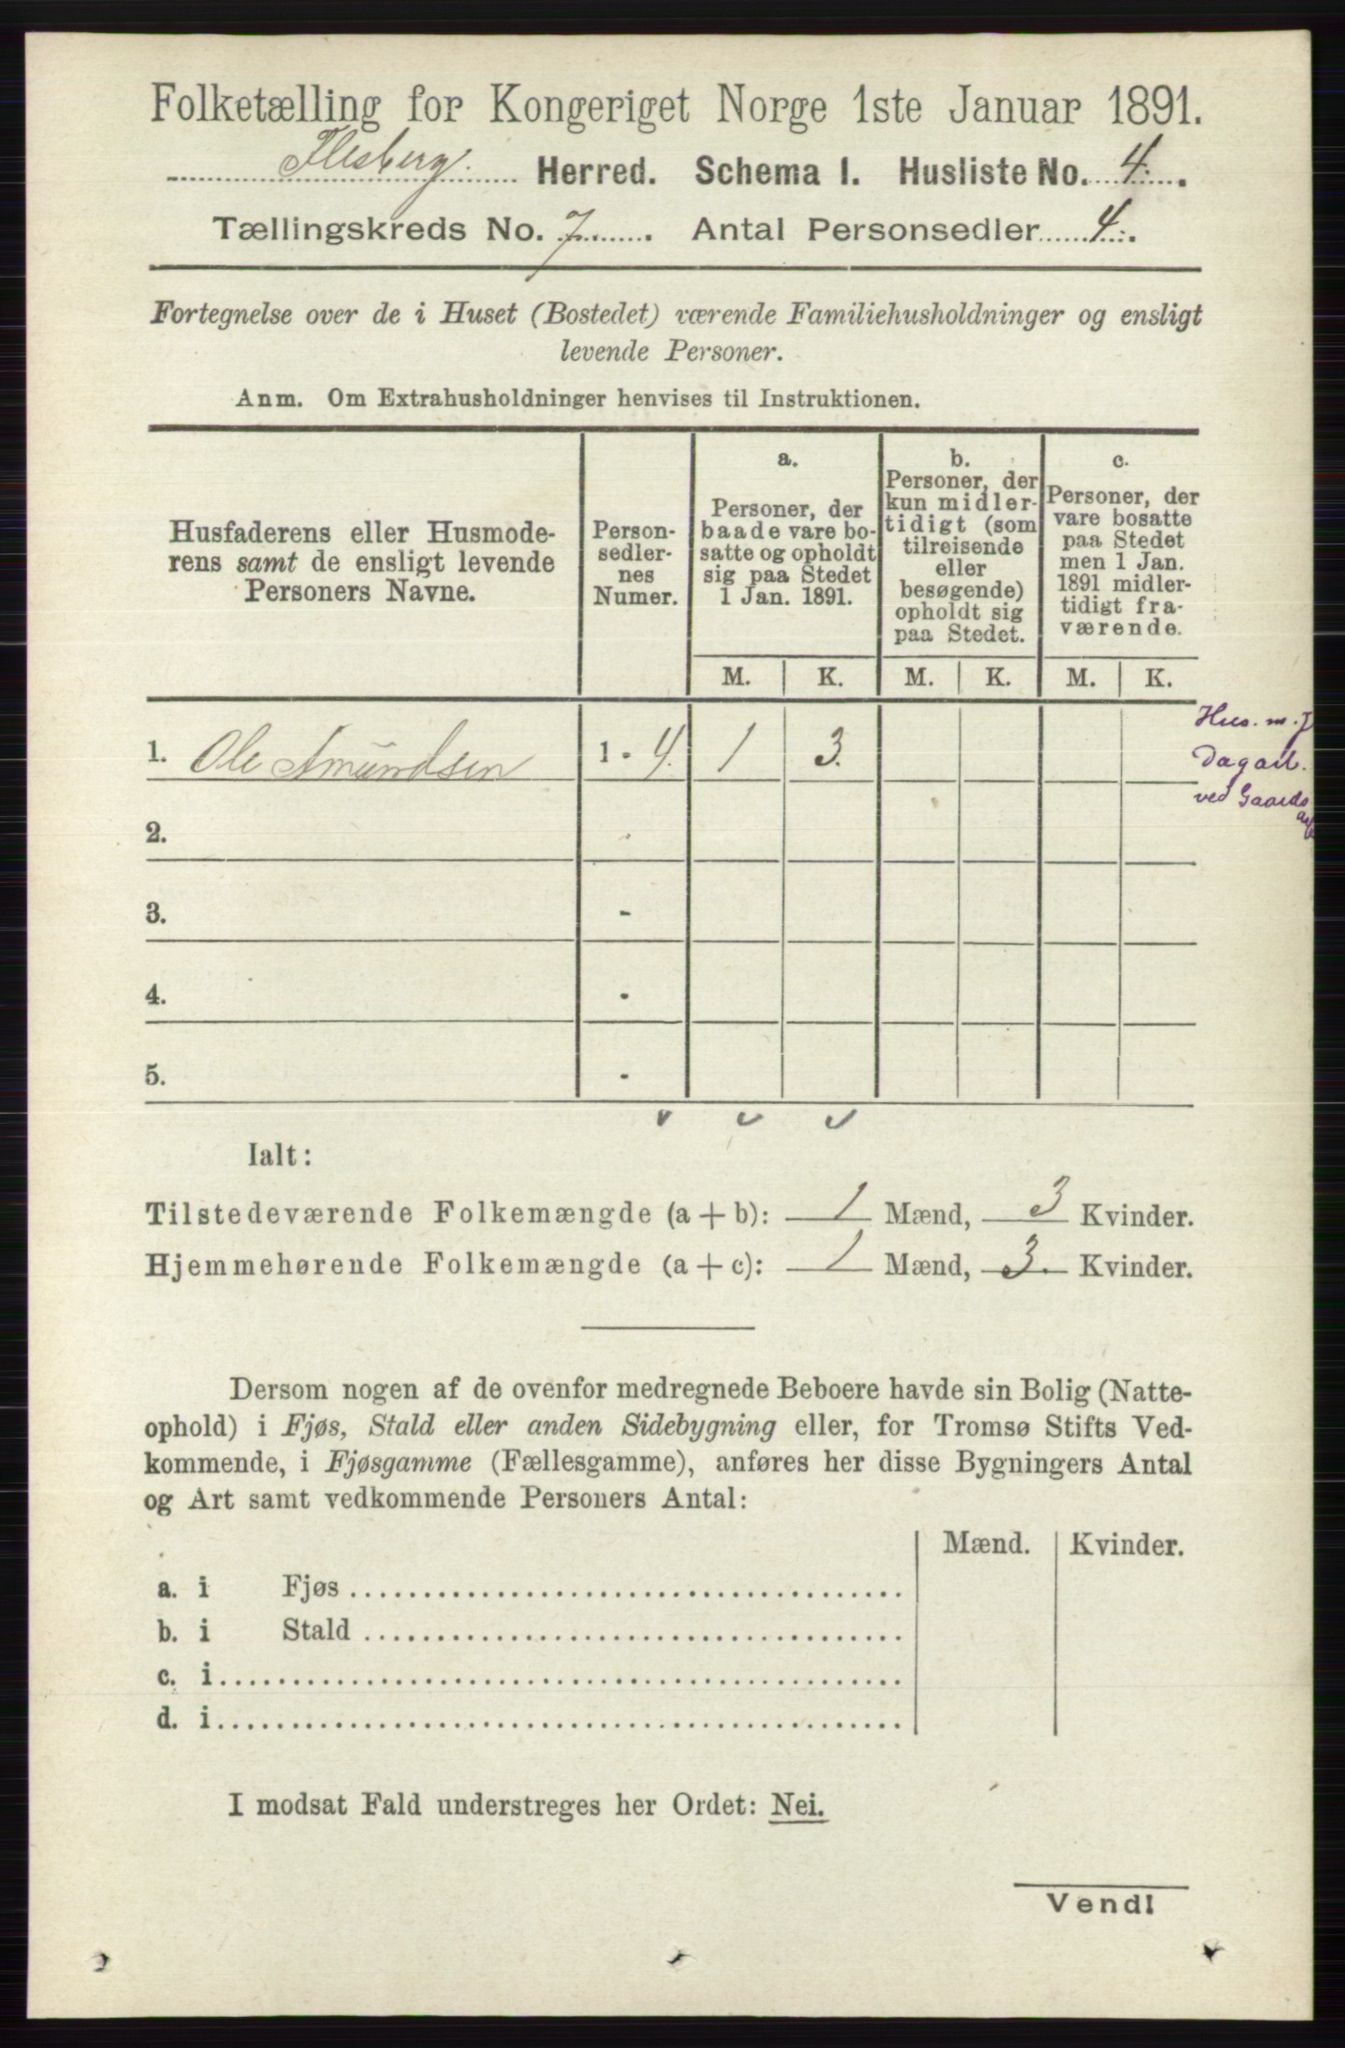 Folketælling for Kongeriget Norge 1ste Januar 1891.
Flesberg Herred. Schema I. Husliste No. 4.
Tællingskreds No. 7. Antal Personsedler 4.
Fortegnelse over de i Huset (Bostedet) værende Familiehusholdninger og ensligt
levende Personer.
Anm. Om Extrahusholdninger henvises til Instruktionen.
Husfaderens eller Husmode-
rens samt de ensligt levende
Personers Navne.
Person-
sedler-
nes
Numer.
a.
Personer, der
baade vare bo-
satte og opholdt
sig paa Stedet
1 Jan. 1891.
b.
Personer, der
kun midler-
tidigt (som
tilreisende
eller
besøgende)
opholdt sig
paa Stedet.
c.
Personer, der
vare bosatte
paa Stedet
men 1 Jan.
1891 midler-
tidigt fra-
værende.
M. K. M. K. M. K.
1. Ole Amundsen 1 - 4. 1 3.
Hus. m. J
Dagarb.
ved Gaards
2. -
3. -
4. -
5. -
Ialt:
Tilstedeværende Folkemængde (a + b): 1 Mænd, 3 Kvinder.
Hjemmehørende Folkemængde (a + c): 1 Mænd, 3. Kvinder.
Dersom nogen af de ovenfor medregnede Beboere havde sin Bolig (Natte-
ophold) i Fjøs, Stald eller anden Sidebygning eller, for Tromsø Stifts Ved-
kommende, i Fjøsgamme (Fællesgamme), anføres her disse Bygningers Antal
og Art samt vedkommende Personers Antal:
Mænd. Kvinder.
a. i Fjøs
b. i Stald
c. i
d. i
I modsat Fald understreges her Ordet: Nei.
Vend!